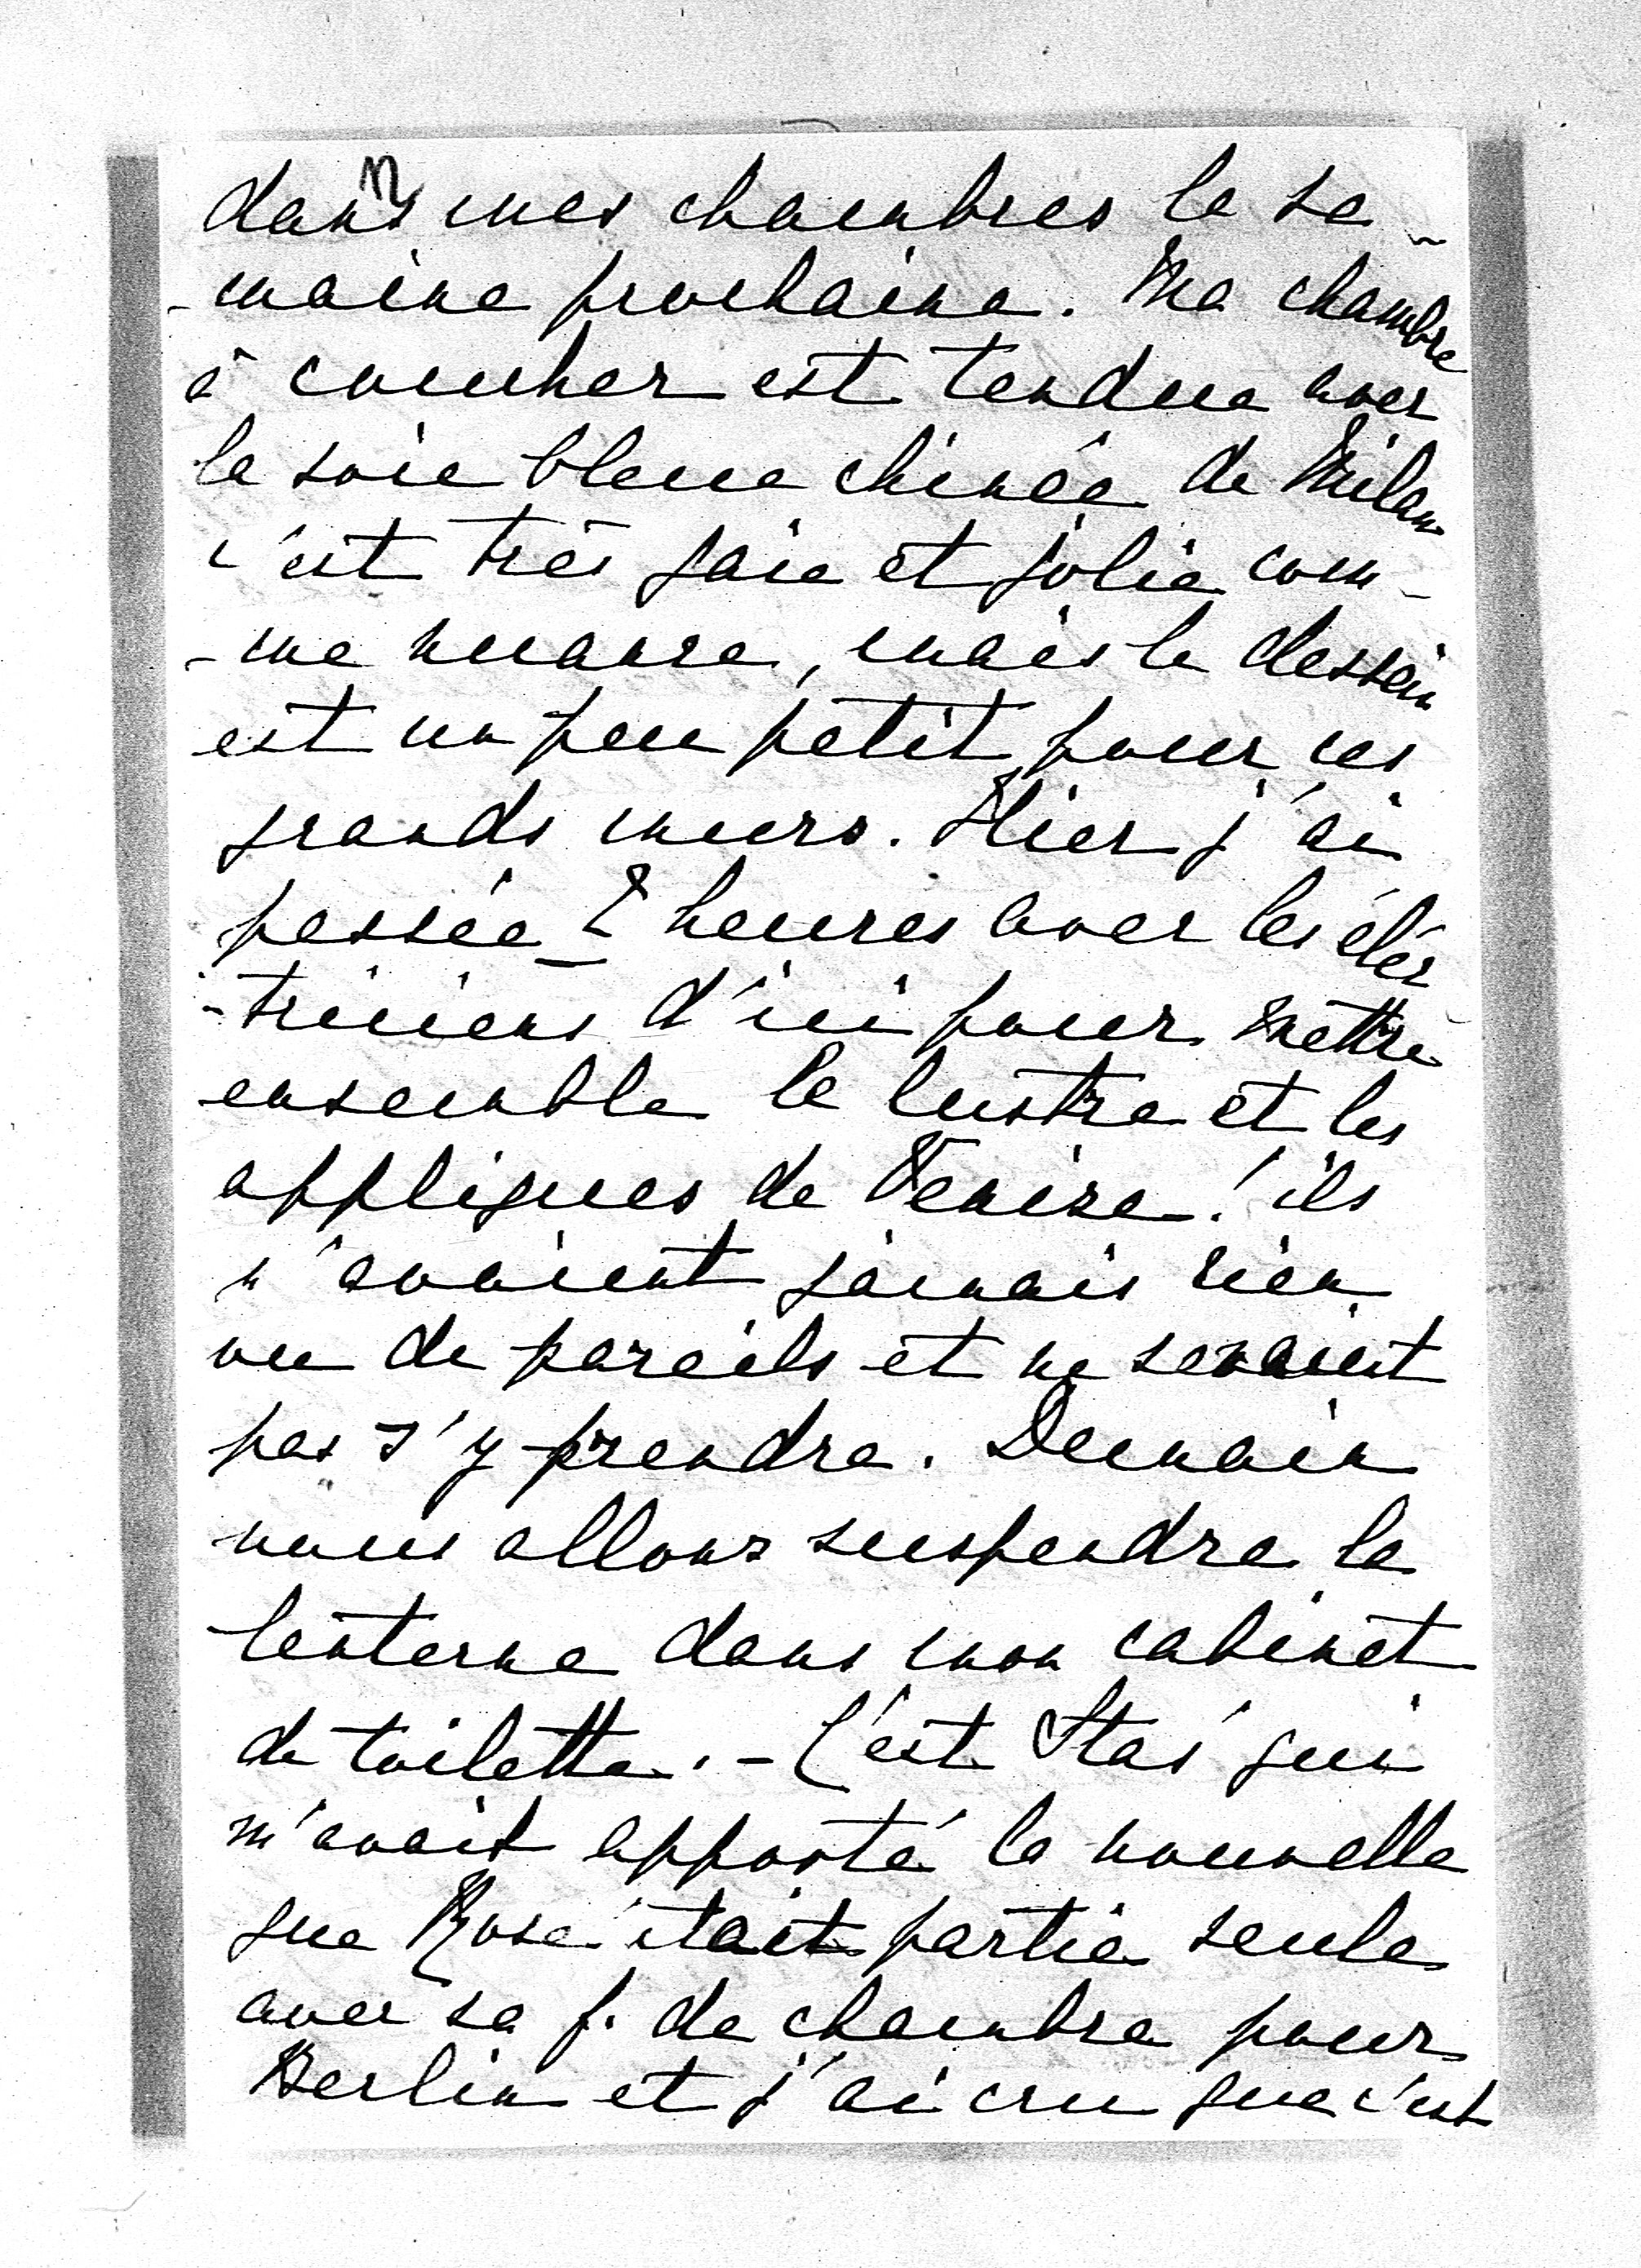 dans mes chambres la se-
-maine prochaine. Ma chambre
à coucher est tendue avec
la soie bleue chinée de Milan
c'est très gaie et jolie com-
-me nuance, mais le dessin
est un peu petit pour ces
grands murs. Hier j'ai
passée 2 heures avec les élec
-triciens d'ici pour mettre
ensemble le lustre et les
appliques de Venise! ils
n'avaient jamais rien
vu de pareils et ne savaient
pas s'y prendre. Demain
nous allons suspendre la
lanterne dans mon cabinet
de toilette. - C'est Stas' qui
m'avait apporté la nouvelle
que Rose était partie seule
avec sa f. de chambre pour
Berlin et j'ai cru que c'est